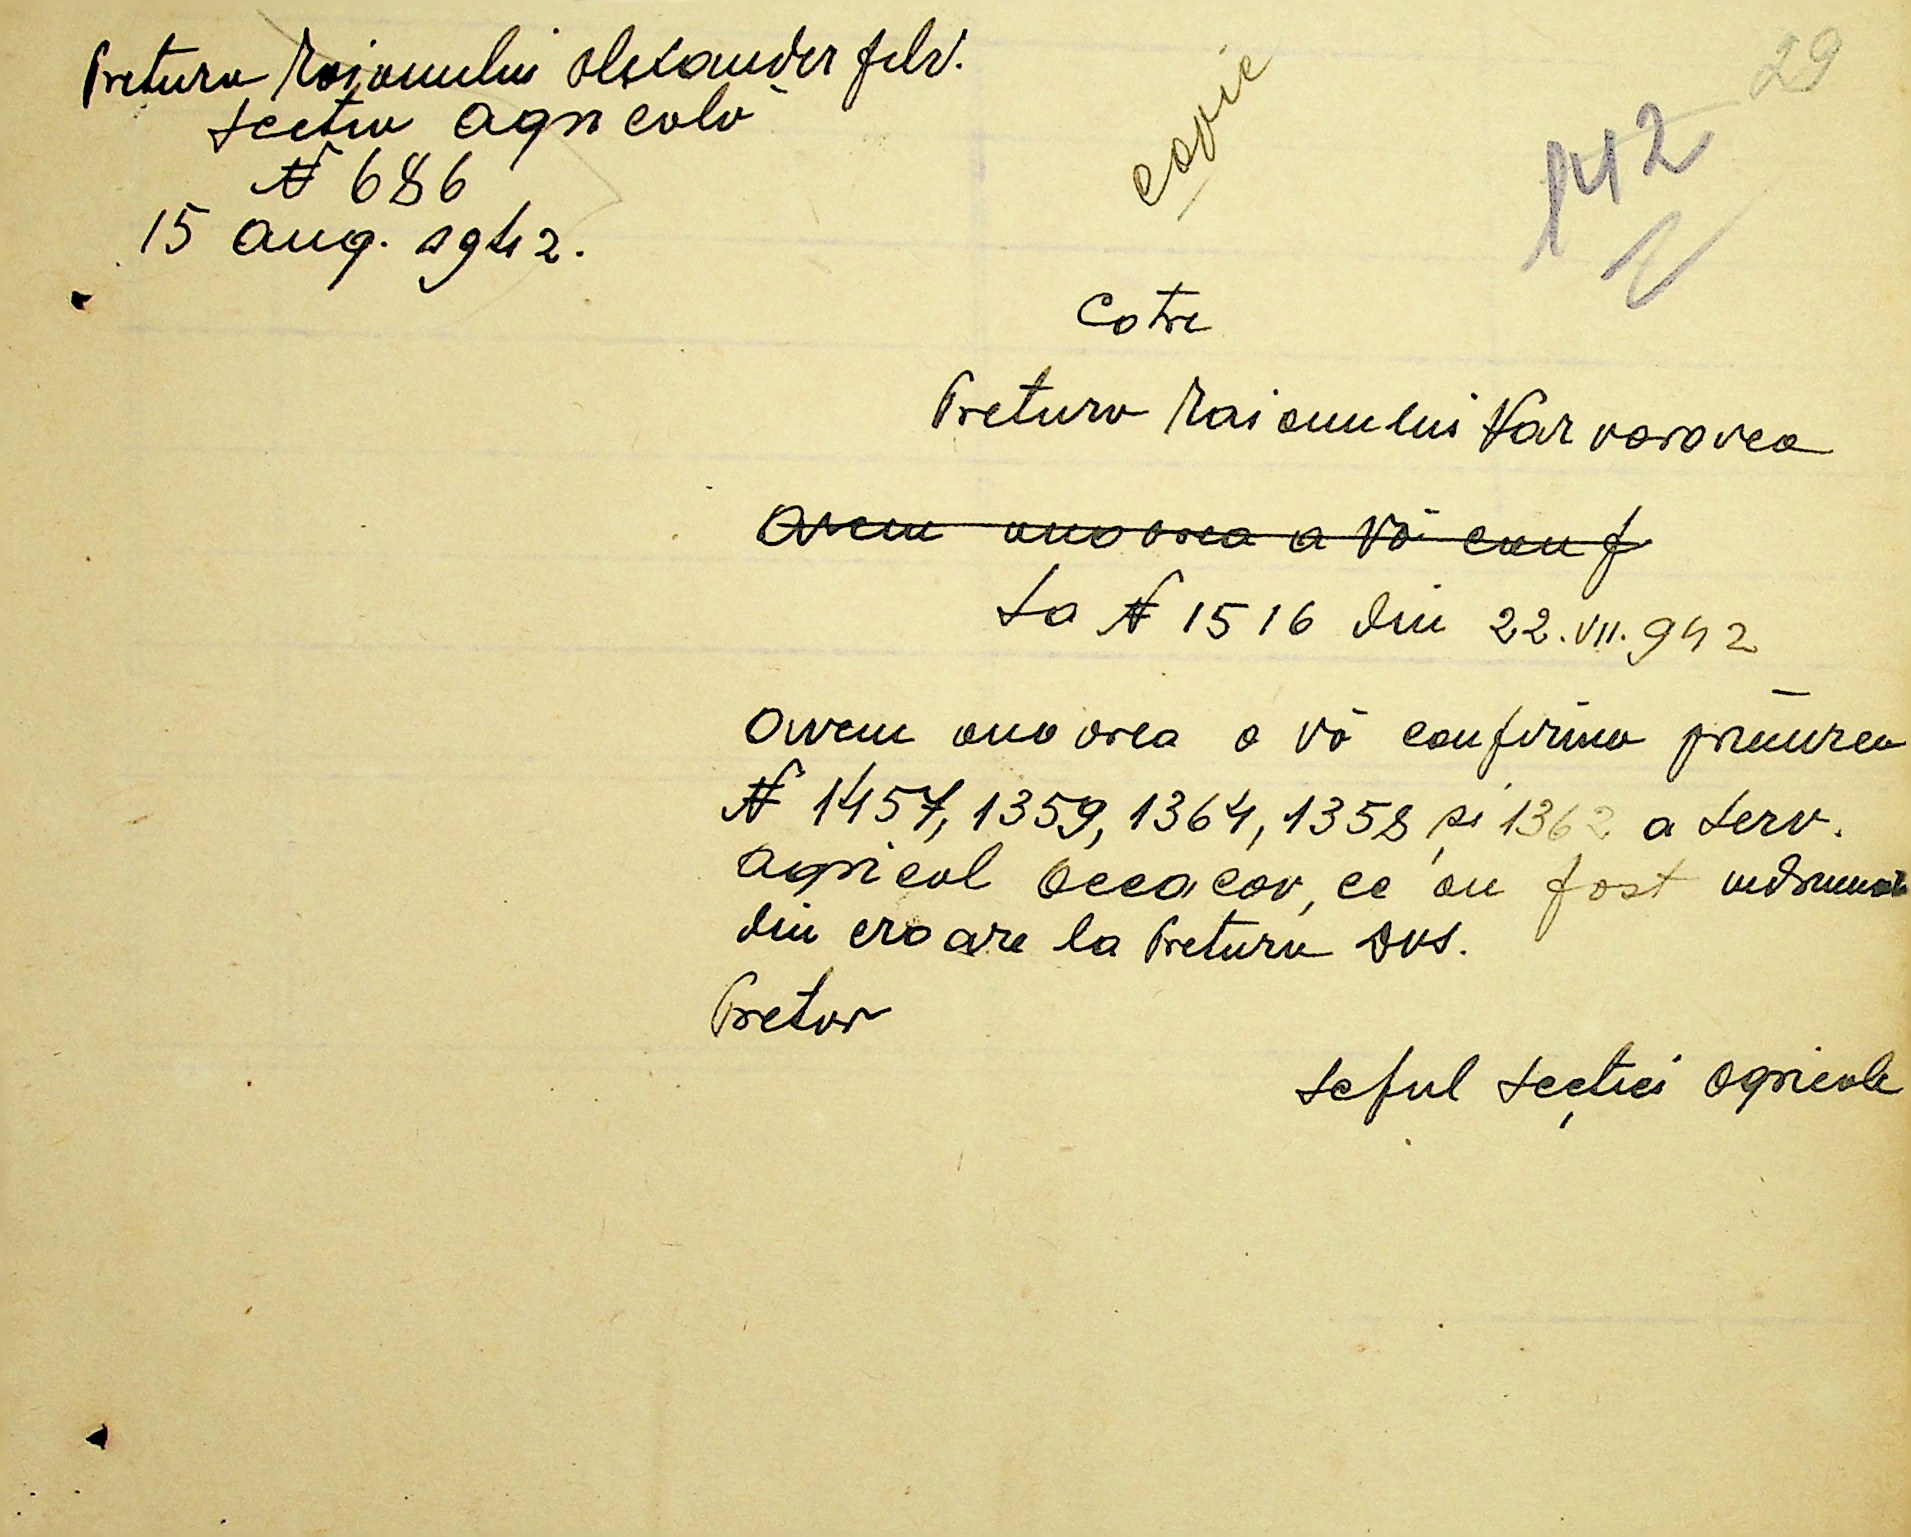 Pretura Raionului Alexanderfeld.
Secția Agricolă
№ 686
15 Aug. 1942.
copie
29
142
Cotre
Pretura Raionului Varvarovca
Avem onoarea a Vă conf
La № 1516 din 22.VII.942
Avem onoarea a Vă confirma primirea
№ 1457, 1359, 1364, 1358, și 1362 a Serv.
Agricol Oceacov, ce au fost îndrumate
din eroare la Pretura Dvs.
Pretor
Șeful Secției Agricole